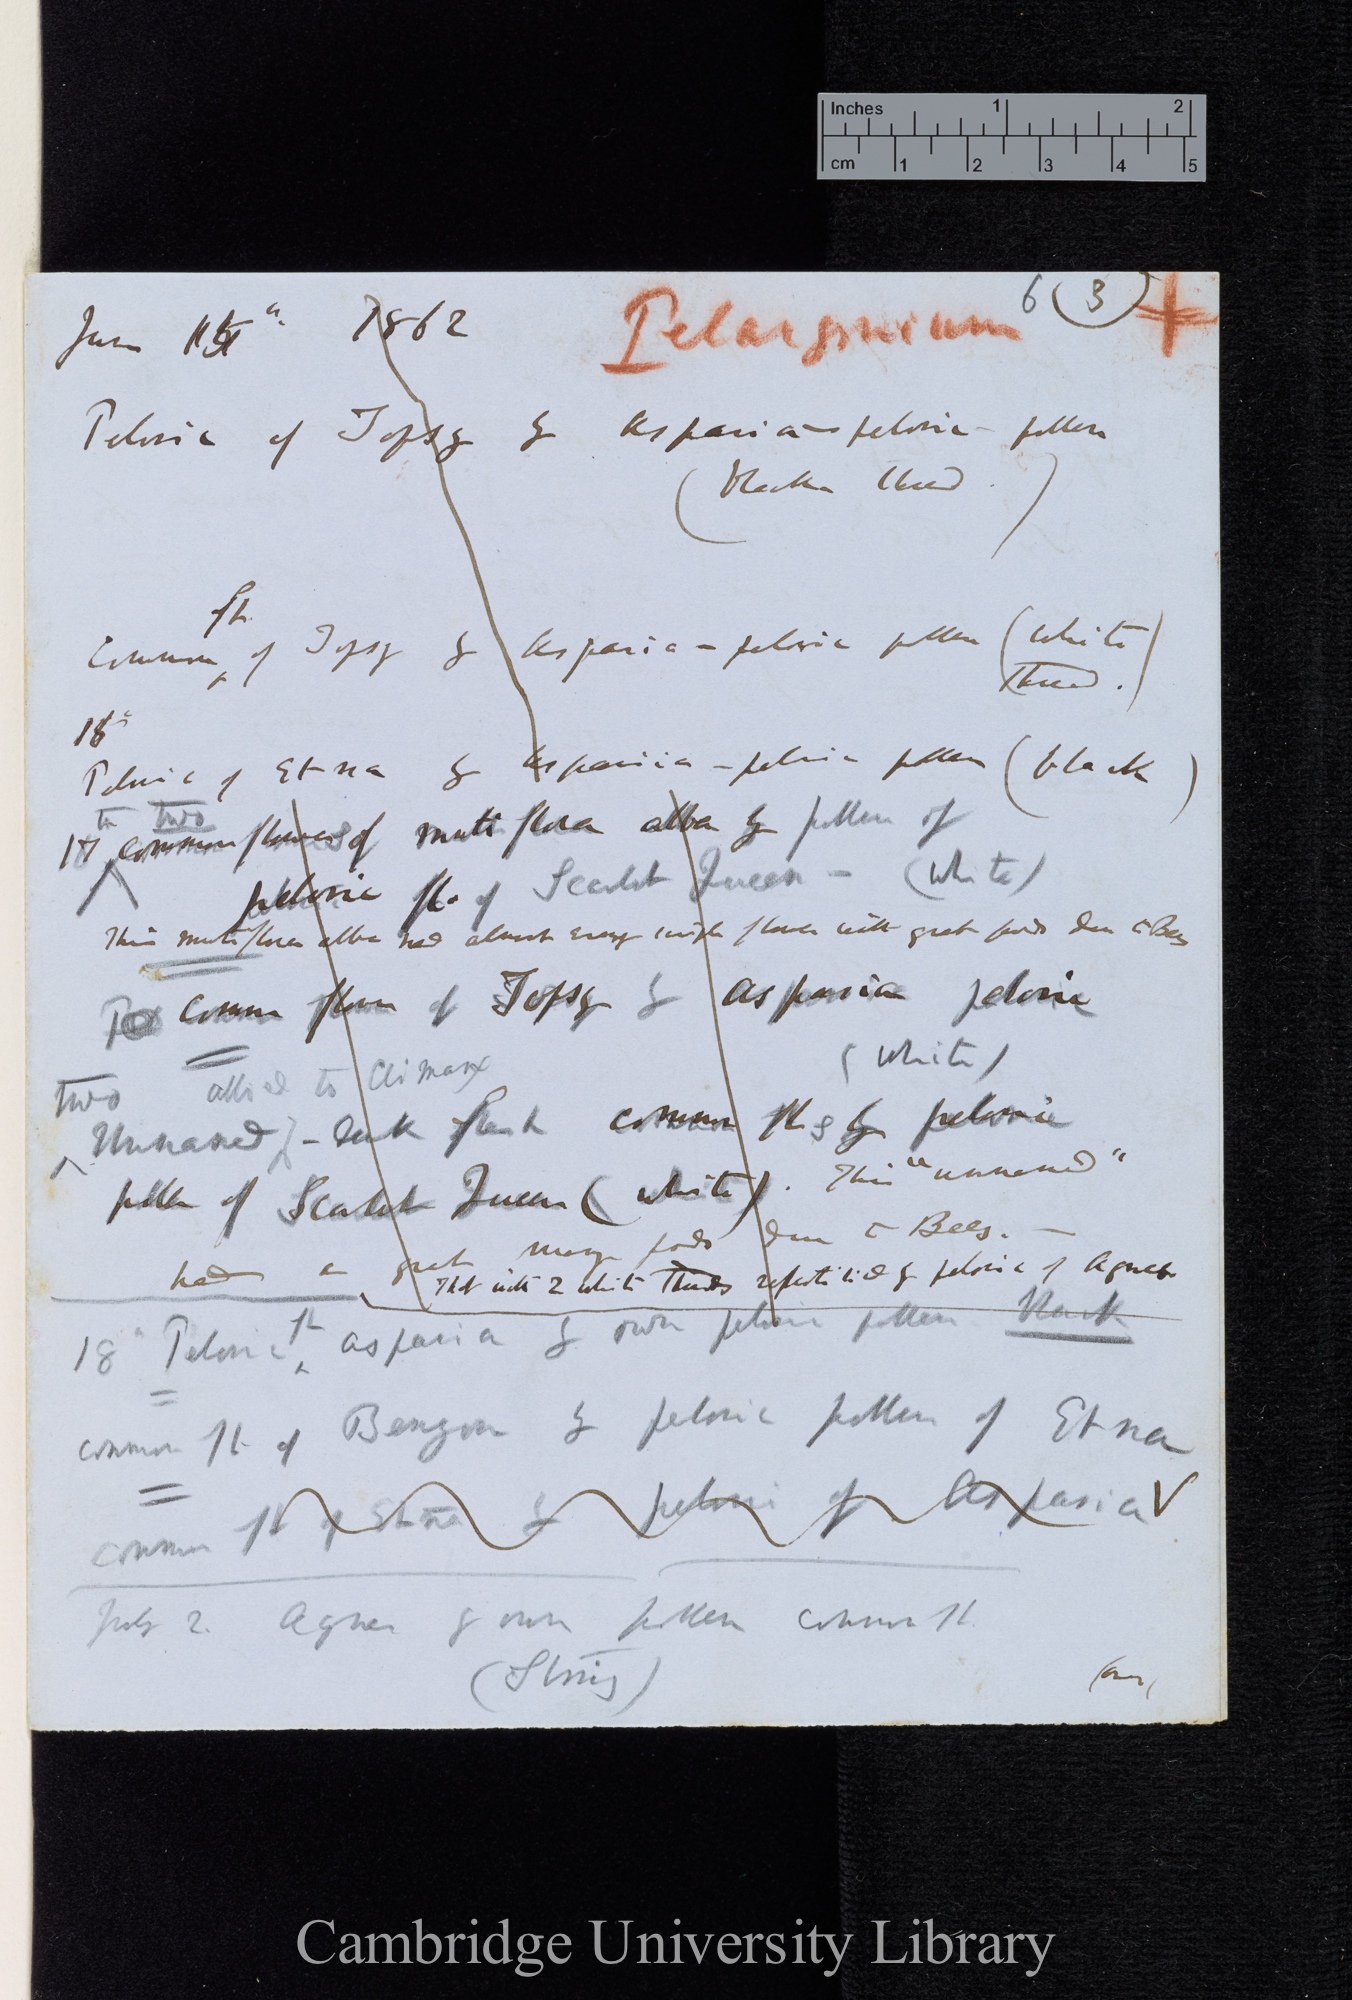 Inches 1 2
cm 1 2 3 4 5
6 (3)
June 1862 Pelargonium
Peloric of Topsy by Aspasia-peloric-pollen
(black thread.)
fl.
Common of Topsy by Aspasia-peloric pollen (white
thread.)
18th
Peloric of Etna by Aspasia-peloric pollen (black)
two
17th common flowers of multiflora alba by pollen of
peloric fl. of Scarlet Queen - (white)
This multiflora alba had almost every single flower with great pods
common flower of Topsy by Aspasia peloric
(white)
two allied to Climax
Unnamed - dark common fls by peloric
pollen of Scarlet Queen (white). This "unnamed"
had a great many pods Bees. -
That with 2 white threads by peloric of Agnes
18th Peloric fl Aspasia by own peloric pollen black
common fl. of by peloric pollen of Etna
common fl of Etna by peloric of Aspasia
July 2. Agnes by own pollen common fl.
(String)
(over)
Cambridge University Library